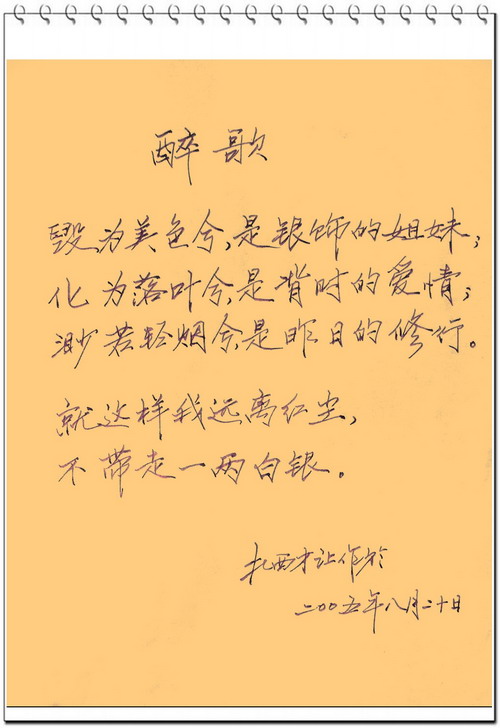 醉歌
毁为美色兮,是银饰的姐妹;
化为落叶兮,是背时的爱情;
渺若轻烟兮,是昨日的修行。
就这样我远离红尘,
不带走一两白银。
扎西才让作于
二〇〇五年八月二十日